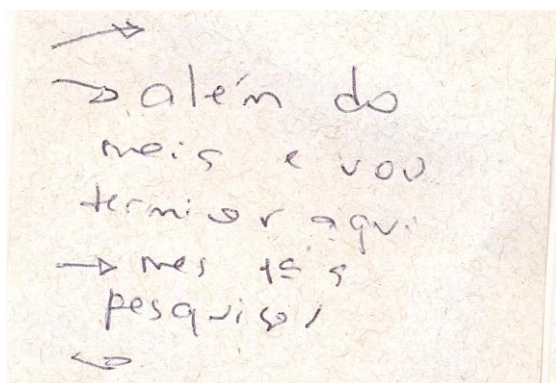 →
→ além do
mais e vou
terminar aqui
→ mes
pesquisas